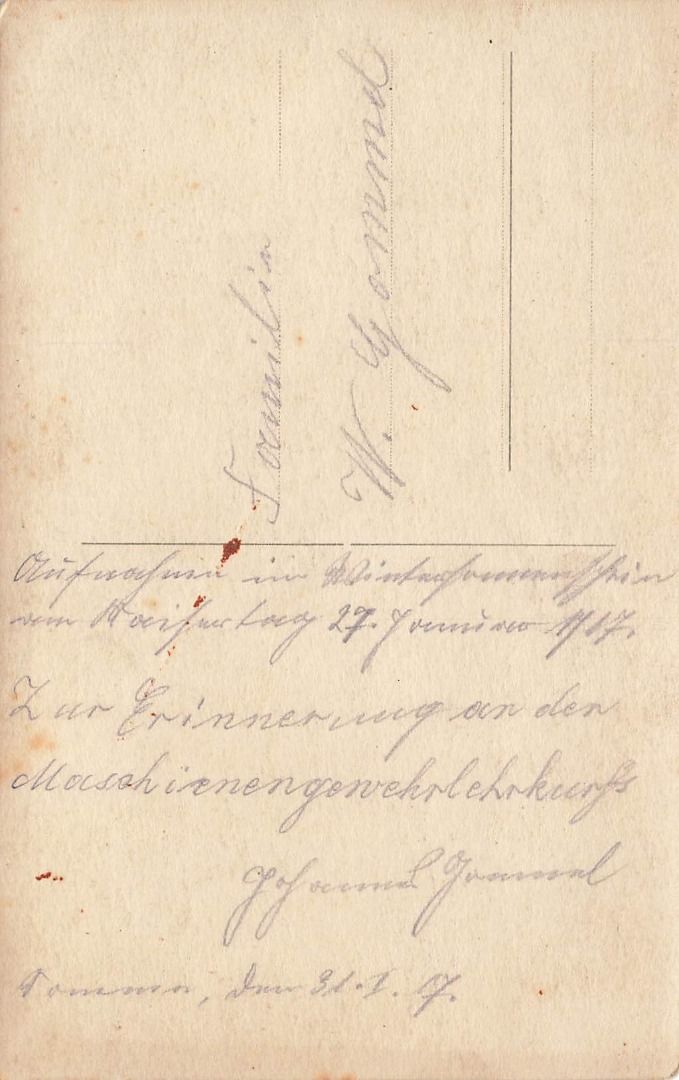 Familie
W. Gommel
Aufnahme im Wintersonnenschein
am Kaisertag 27. Januar 1917.
Zur Erinnerung an den
Maschienengewehrlehrkurs
Johannes Gommel
den 31. I. 17.